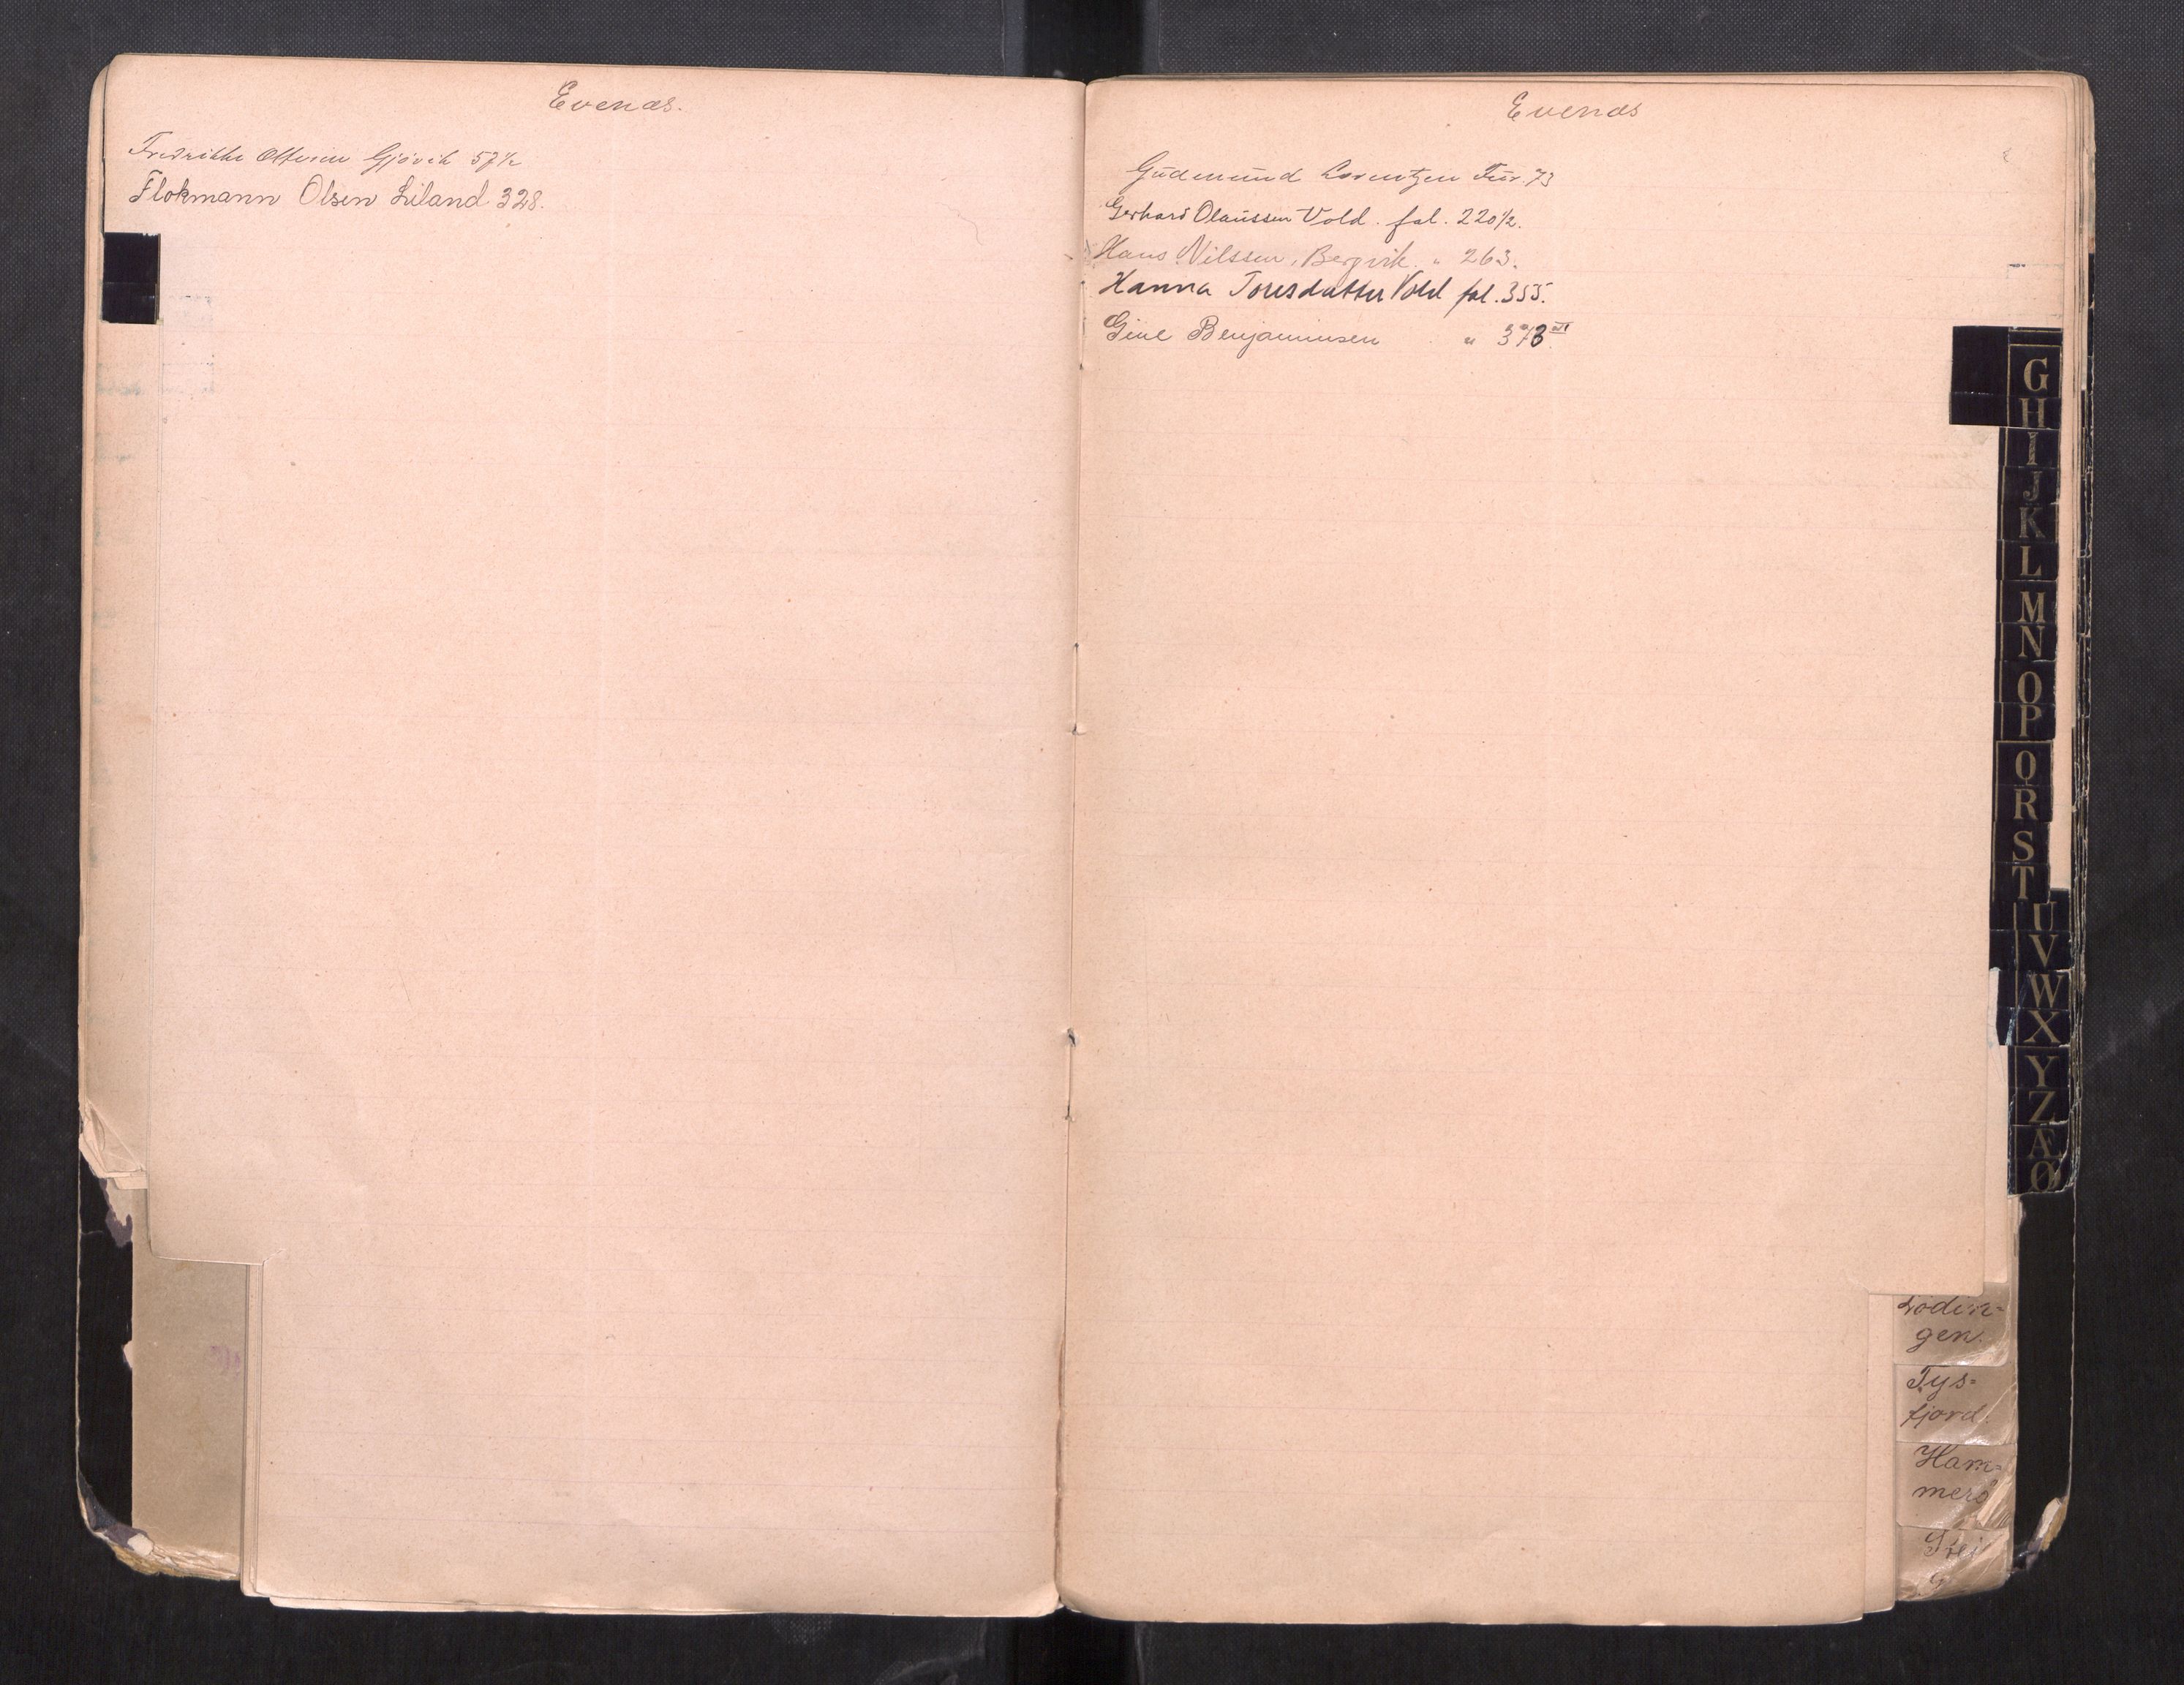 Evenæs.
Fredrikke Ottesen Gjövik 57½
Flokmann Olsen Liland 328.
Evenæs
Gudmund Lorentzen Fur. 73
Gerhard Olaussen Vold. fol. 220½.
Hans Nilssen, Bergvik. " 263.
Hanna Toresdatter Vold fol. 355.
Gine Benjaminsen " 373
G
H
I
J
K
L
M
N
O
P
Q
R
S
T
U
V
W
X
Y
Z
Æ
Ø
Lödin=
gen.
Tys=
fjord.
Ham=
merö